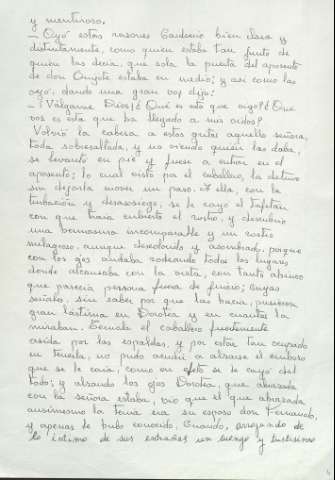 y mentirosa.
— Oyó estas razones Cardenio bien clara y
distintamente, como quien estaba tan junto de
quien las decia, que sola la puerta del aposento
de don Quijote estaba en medio; y asi como las
oyó, dando una gran voz dijo:
— ¡Válgame Dios! ¿Qué es esto que oigo? ¿Que
voz es esta que ha llegado a mis oidos?
Volvió la cabeza a estos gritos aquella señora,
toda sobresaltada, y no viendo quien las daba,
se levantó en pie y fuese a entrar en el
aposento; lo cual visto por el caballero, la detuvo
sin dejarla mover un paso. A ella, con la
turbación y desasosiego, se le cayo el tafetan
con que traia cubierto el rostro, y descubrio
una hermosura incomparable y un rostro
milagroso, aunque descolorido y asombrado, porque
con los ojos andaba rodeando todos los lugares
donde alcanzaba con la vista, con tanto ahinco
que parecia persona fuera de juicio; cuyas
señales, sin saber por que las hacia, pusieron
gran lástima en Dorotea y en cuantos la
miraban. Teniala el caballero fuertemente
asida por las espaldas, y por estar tan ocupado
en tenerla, no pudo acudir a alzarse el embozo
que se le caia, como en efeto se le cayó del
todo; y alzando los ojos Dorotea, que abrazada
con la señora estaba, vio que el que abrazada
ansimesmo la tenia era su esposo don Fernando,
y apenas le hubo conocido, cuando, arrojando de
lo intimo de sus entrañas un luengo y tristisimo